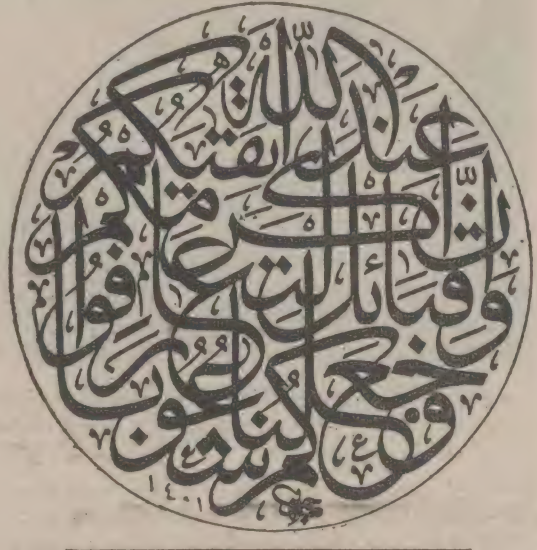 وَجَعَلْنَاكُمْ شُعُوبًا
وَقَبَائِلَ لِتَعَارَفُوا
إِنَّ أَكْرَمَكُمْ
عِنْدَ اللَّهِ أَتْقَىكُمْ
١٤٠١